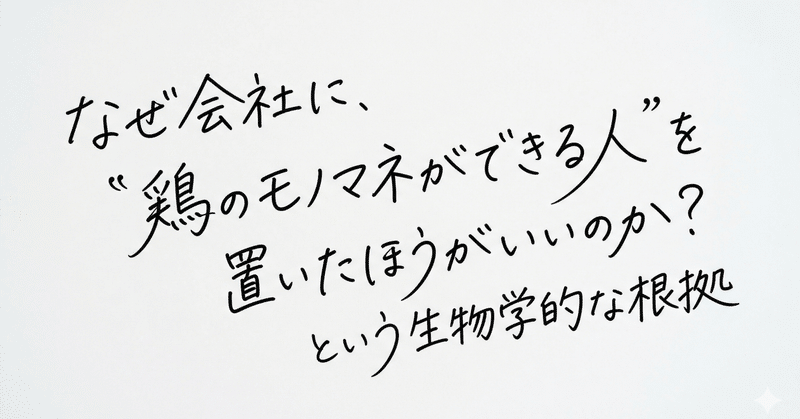 なぜ会社に、
“鶏のモノマネができる人”を
置いたほうがいいのか？
という生物学的な根拠